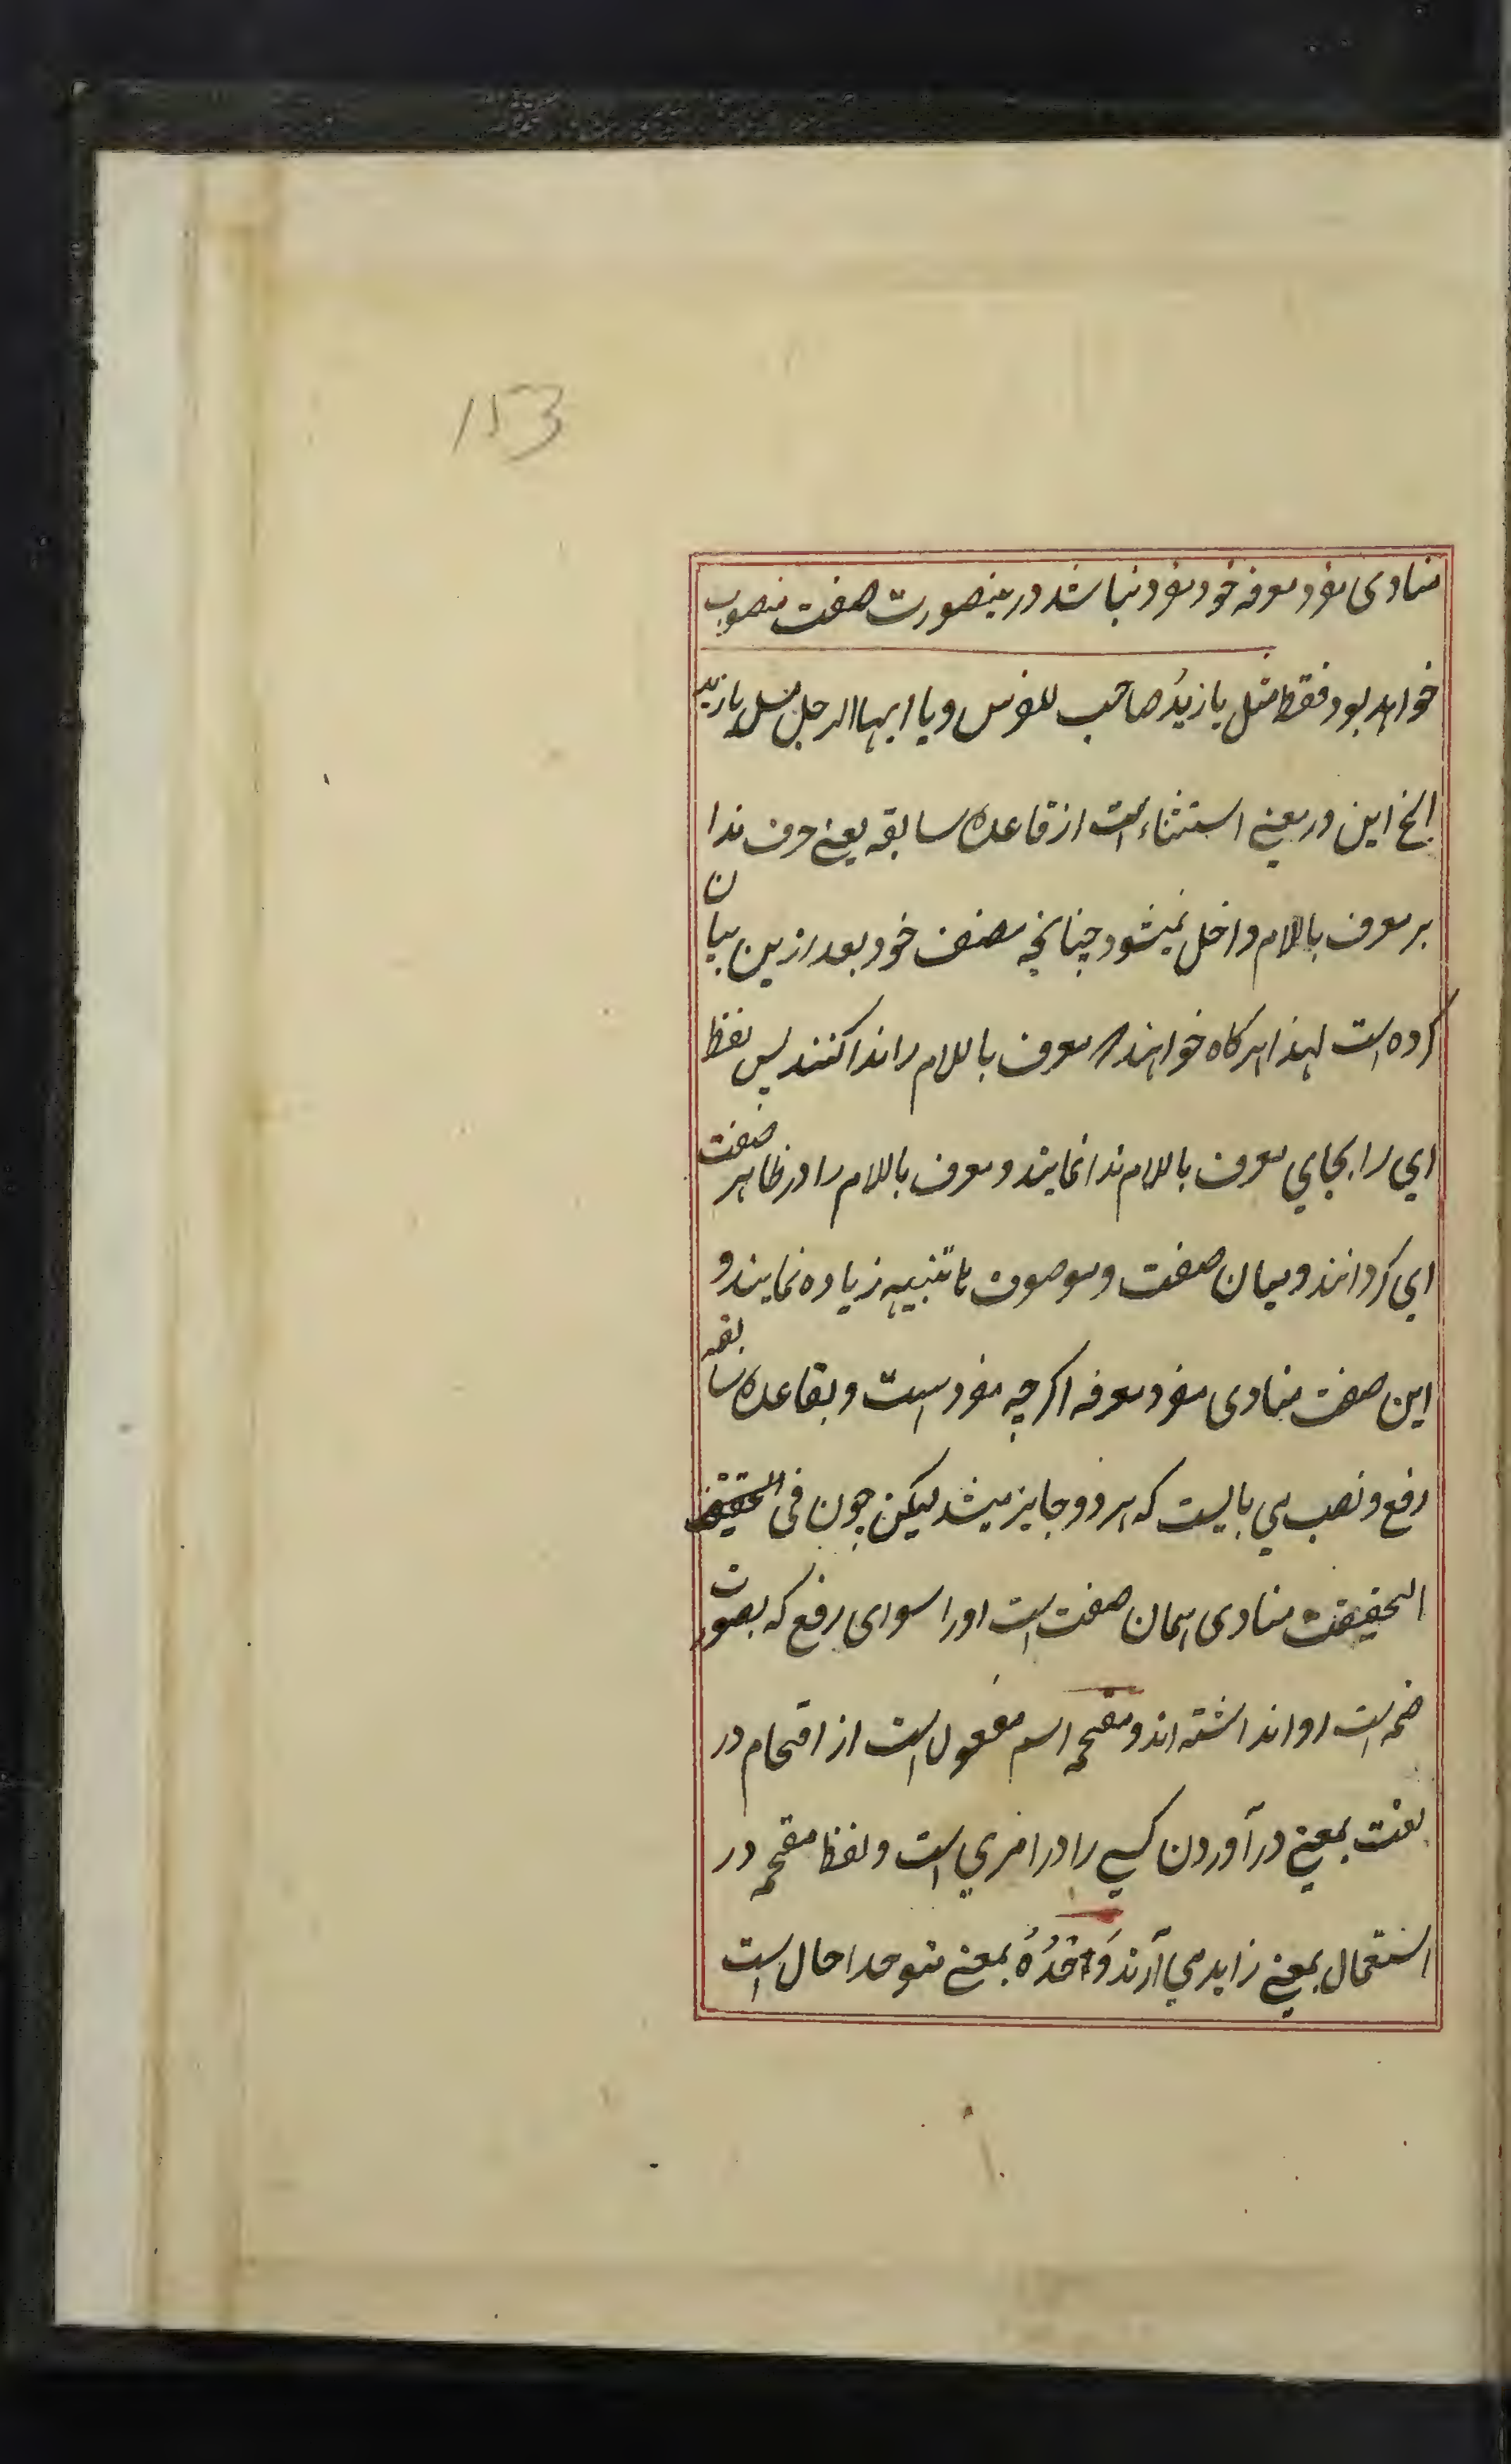 153
منادی مفرد معرفه خود مفرد نباشد درینصورت صفت منصوب
خواهد بود فقط مثل یا زیدُ صاحب للفرس و یا ایها الرجل مثل یا زید
الخ این در معنی استثناء است از قاعده سابقه یعنی حرف ندا
بر معرف باللام داخل نمیشود چنانچه مصنف خود بعد ازین بیان
کرده است لهذا هرکاه خواهند معرف باللام را ندا کنند پس لفظ
ای را بجای معرف باللام ندا نمایند و معرف باللام را در ظاهر صفت
ای کردانند و میان صفت و موصوف ها تنبیه زیاده نمایند و
این صفت منادی مفرد معرفه اکرچه مفرد است و بقاعده سابقه
رفع و نصب می بایست که هر دو جایز میشد لیکن چون فی الحقیقت
الحقیقت منادی همان صفت است او را سوای رفع که بصورت
ضمه است روا نداشته اند و مقحمه اسم مفعول است از اقحام در
لغت بمعنی در آوردن کسی را در امری است و لفظ مقحمه در
استعمال بمعنی زاید می آرند وَ حْدَُهُ بمعنی متوحدا حال است